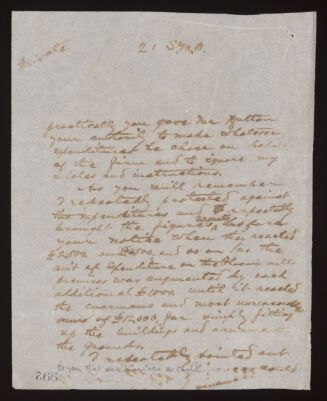 Private
21 Syd.
practically you gave Mr Hutton
your authority to make whatever
expenditures he chose on behalf
of the firm and to ignore my
wishes and instructions.
As you will remember
I repeatedly protested against
this expenditures and repeatedly
brought the figures before
your notice when they reached
£2,500 and and so on as the
amt of expenditure on the Phoenix mill
premises was augmented by each
additional £1000 until it reached
the enormous and most unreasonable
sums of £12,000, for simply fitting
up the buildings and
the grounds.
I repeatedly pointed out
to you that our business
could
566